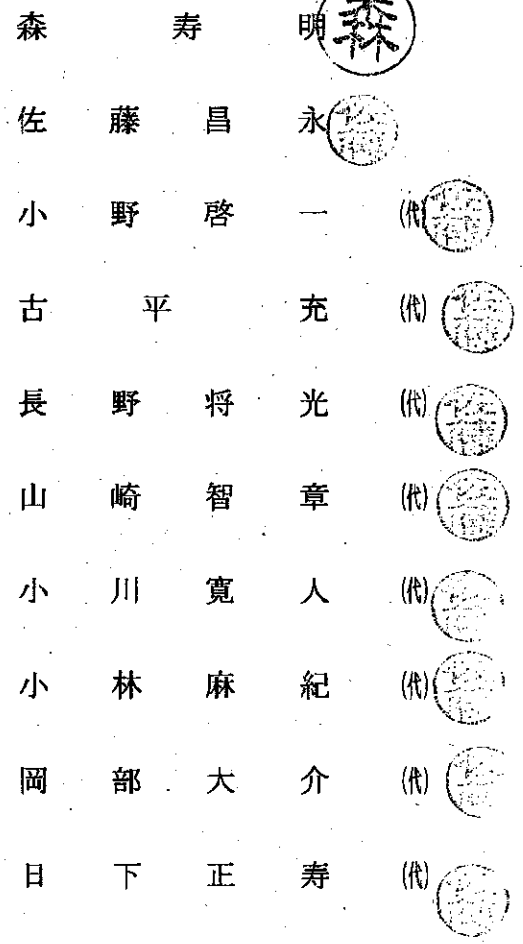 森寿明 森
佐藤昌永 佐藤
小野啓一 (代) 佐藤
古平充 (代) 佐藤
長野将光 (代) 佐藤
山崎智章 (代) 佐藤
小川寛人 (代)
小林麻紀 (代)
岡部大介 (代)
日下正寿 (代)